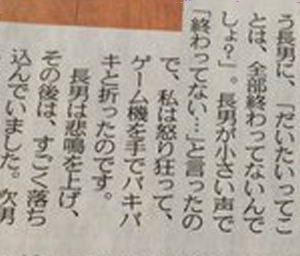 う長男に、「だいたいってこ
とは、全部終わってないんで
しょ？」。長男が小さい声で
「終わってない…」と言ったの
で、私は怒り狂って、
ゲーム機を手でバキバ
キと折ったのです。
長男は悲鳴を上げ、
その後は、すごく落ち
込んでいました。次男